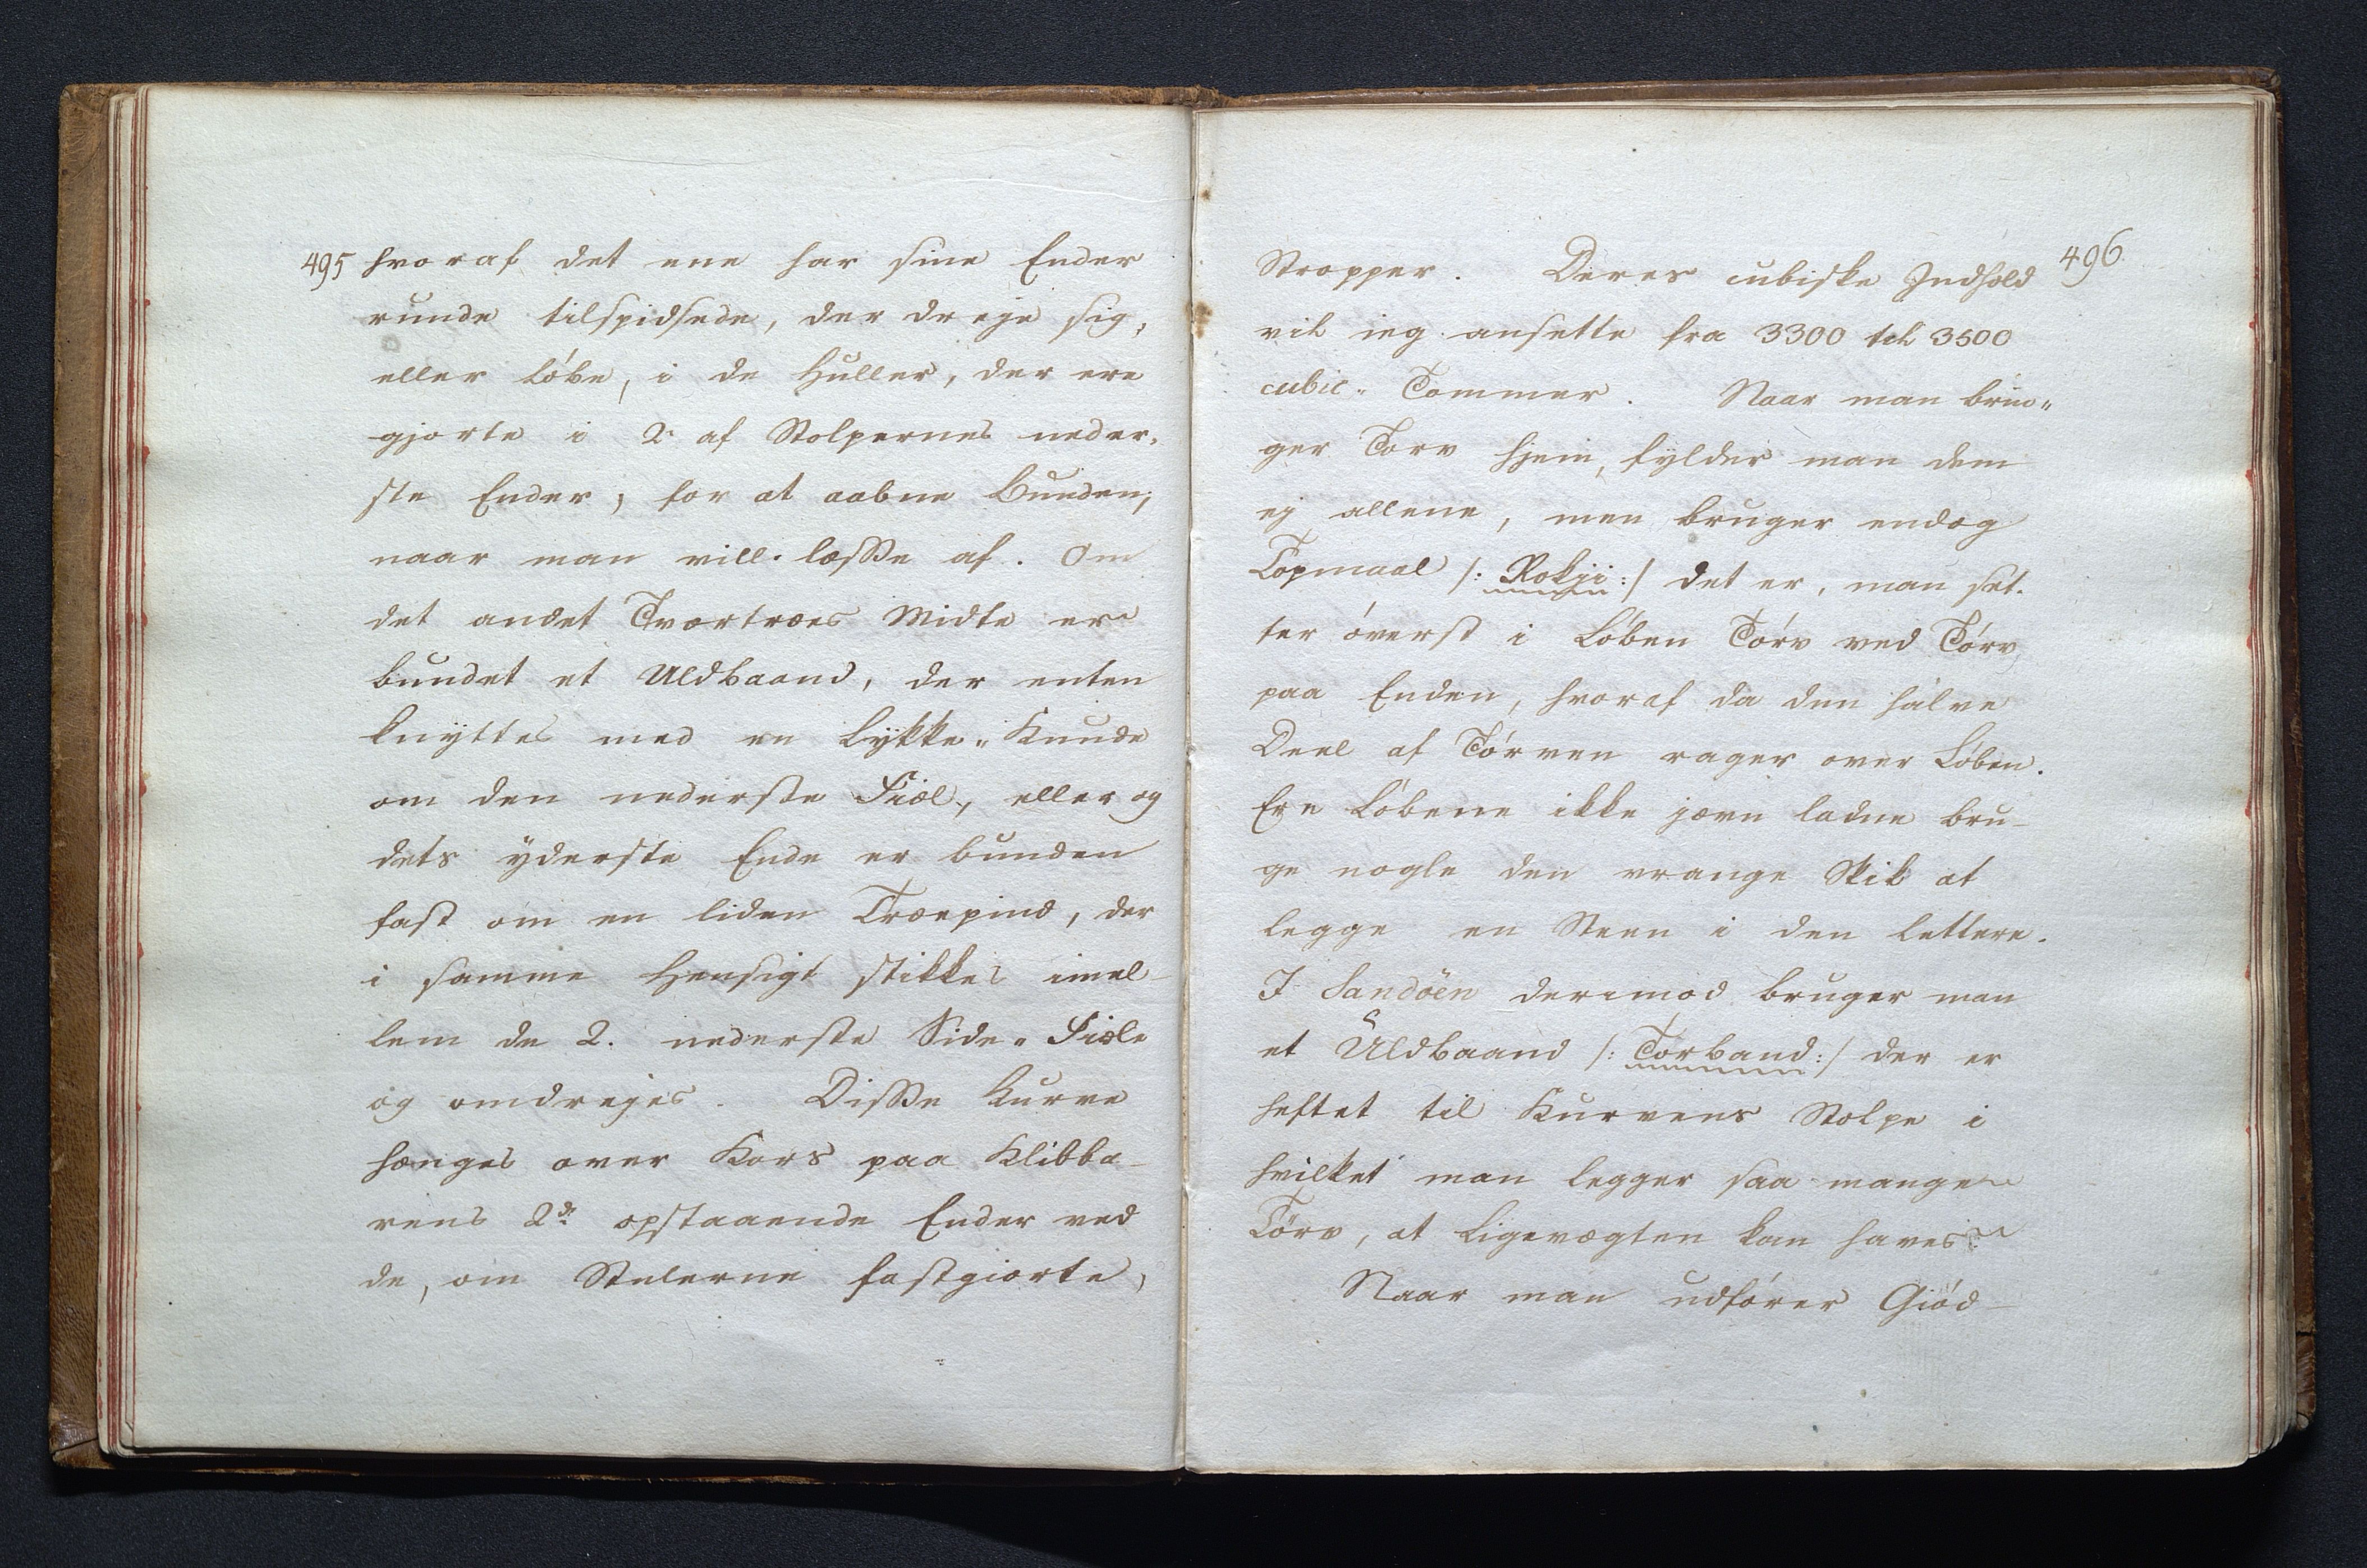 495
hvoraf det ene har sine Ender
runde tilspidsede, der dreje sig,
eller løbe, i de Huller, der ere
gjorte i 2 af Stolpernes neder-
ste Ender, for at aabne Bunden,
naar man vill læsse af. Om
det andet Tværtræes Midte er
bundet et Uldbaand, der enten
knyttes med en Lykke-Knude
om den nederste Fiæl, eller og
dets yderste Ende er bunden
fast om en liden Træepind, der
i samme Hensigt stikkes imel-
lem de 2. nederste Side-Fiæle
og omdrejes. Disse Kurve
hænges over Kors paa Klibba-
rens 2de opstaaende Ender ved
de, om Stelerne fastgiorte,
496
Stropper. Deres cubiske Indhold
vil ieg ansette fra 3300 til 3500
cubic-Tommer. Naar man brin-
ger Torv hjem, fylder man dem
ej allene, men bruger endog
Topmaal /: Rokji :/ det er, man set-
ter øverst i Løben Tørv ved Tørv,
paa Enden, hvoraf da den halve
Deel af Tørven rager over Løben.
Ere Løbene ikke jævn ladne bru-
ge nogle den vrange Skik at
legge en Steen i den lettere.
I Sandöen derimod bruger man
et Uldbaand /: Torband :/ der er
heftet til Kurvens Stolpe i
hvilket man legger saa mange
Törv, at Ligevægten kan haves.
Naar man udfører Giød-